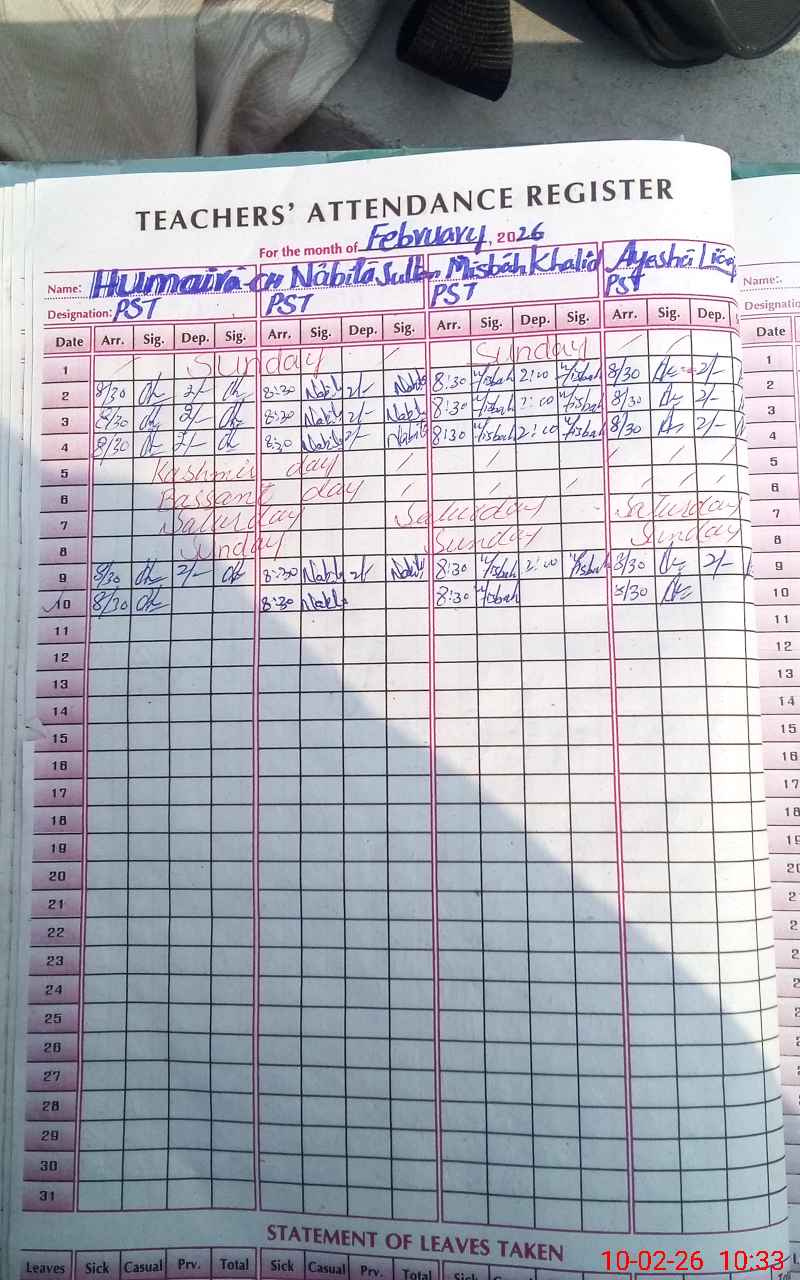 TEACHERS' ATTENDANCE REGISTER
For the month of February, 2026
Name: Humaira Nabila Sultan Misbah Khalid Ayesha
Designation: PST PST PST PST
Date Arr. Sig. Dep. Sig. Arr. Sig. Dep. Sig. Arr. Sig. Dep. Sig. Arr. Sig. Dep.
1 Sunday Sunday
2 8/30 2/- 8:30 Nabila 2/- Nabila 8:30 Misbah 2:00 Misbah 8/30 2/-
3 8/30 2/- 8:30 Nabila 2/- Nabila 8:30 Misbah 2:00 Misbah 8/30 2/-
4 8/30 2/- 8:30 Nabila 2/- Nabila 8:30 Misbah 2:00 Misbah 8/30 2/-
5 Kashmir day
6 Bassant day
7 Saturday Saturday Saturday
8 Sunday Sunday Sunday
9 8/30 2/- 8:30 Nabila 2/- Nabila 8:30 Misbah 2:00 Misbah 8/30 2/-
10 8/30 8:30 Nabila 8:30 Misbah 8/30
11
12
13
14
15
16
17
18
19
20
21
22
23
24
25
26
27
28
29
30
31
STATEMENT OF LEAVES TAKEN
Leaves Sick Casual Prv. Total Sick Casual Prv. Total Sick
Name:.
Designation
Date
1
2
3
4
5
6
7
8
9
10
11
12
13
14
15
16
17
18
10-02-26 10:33